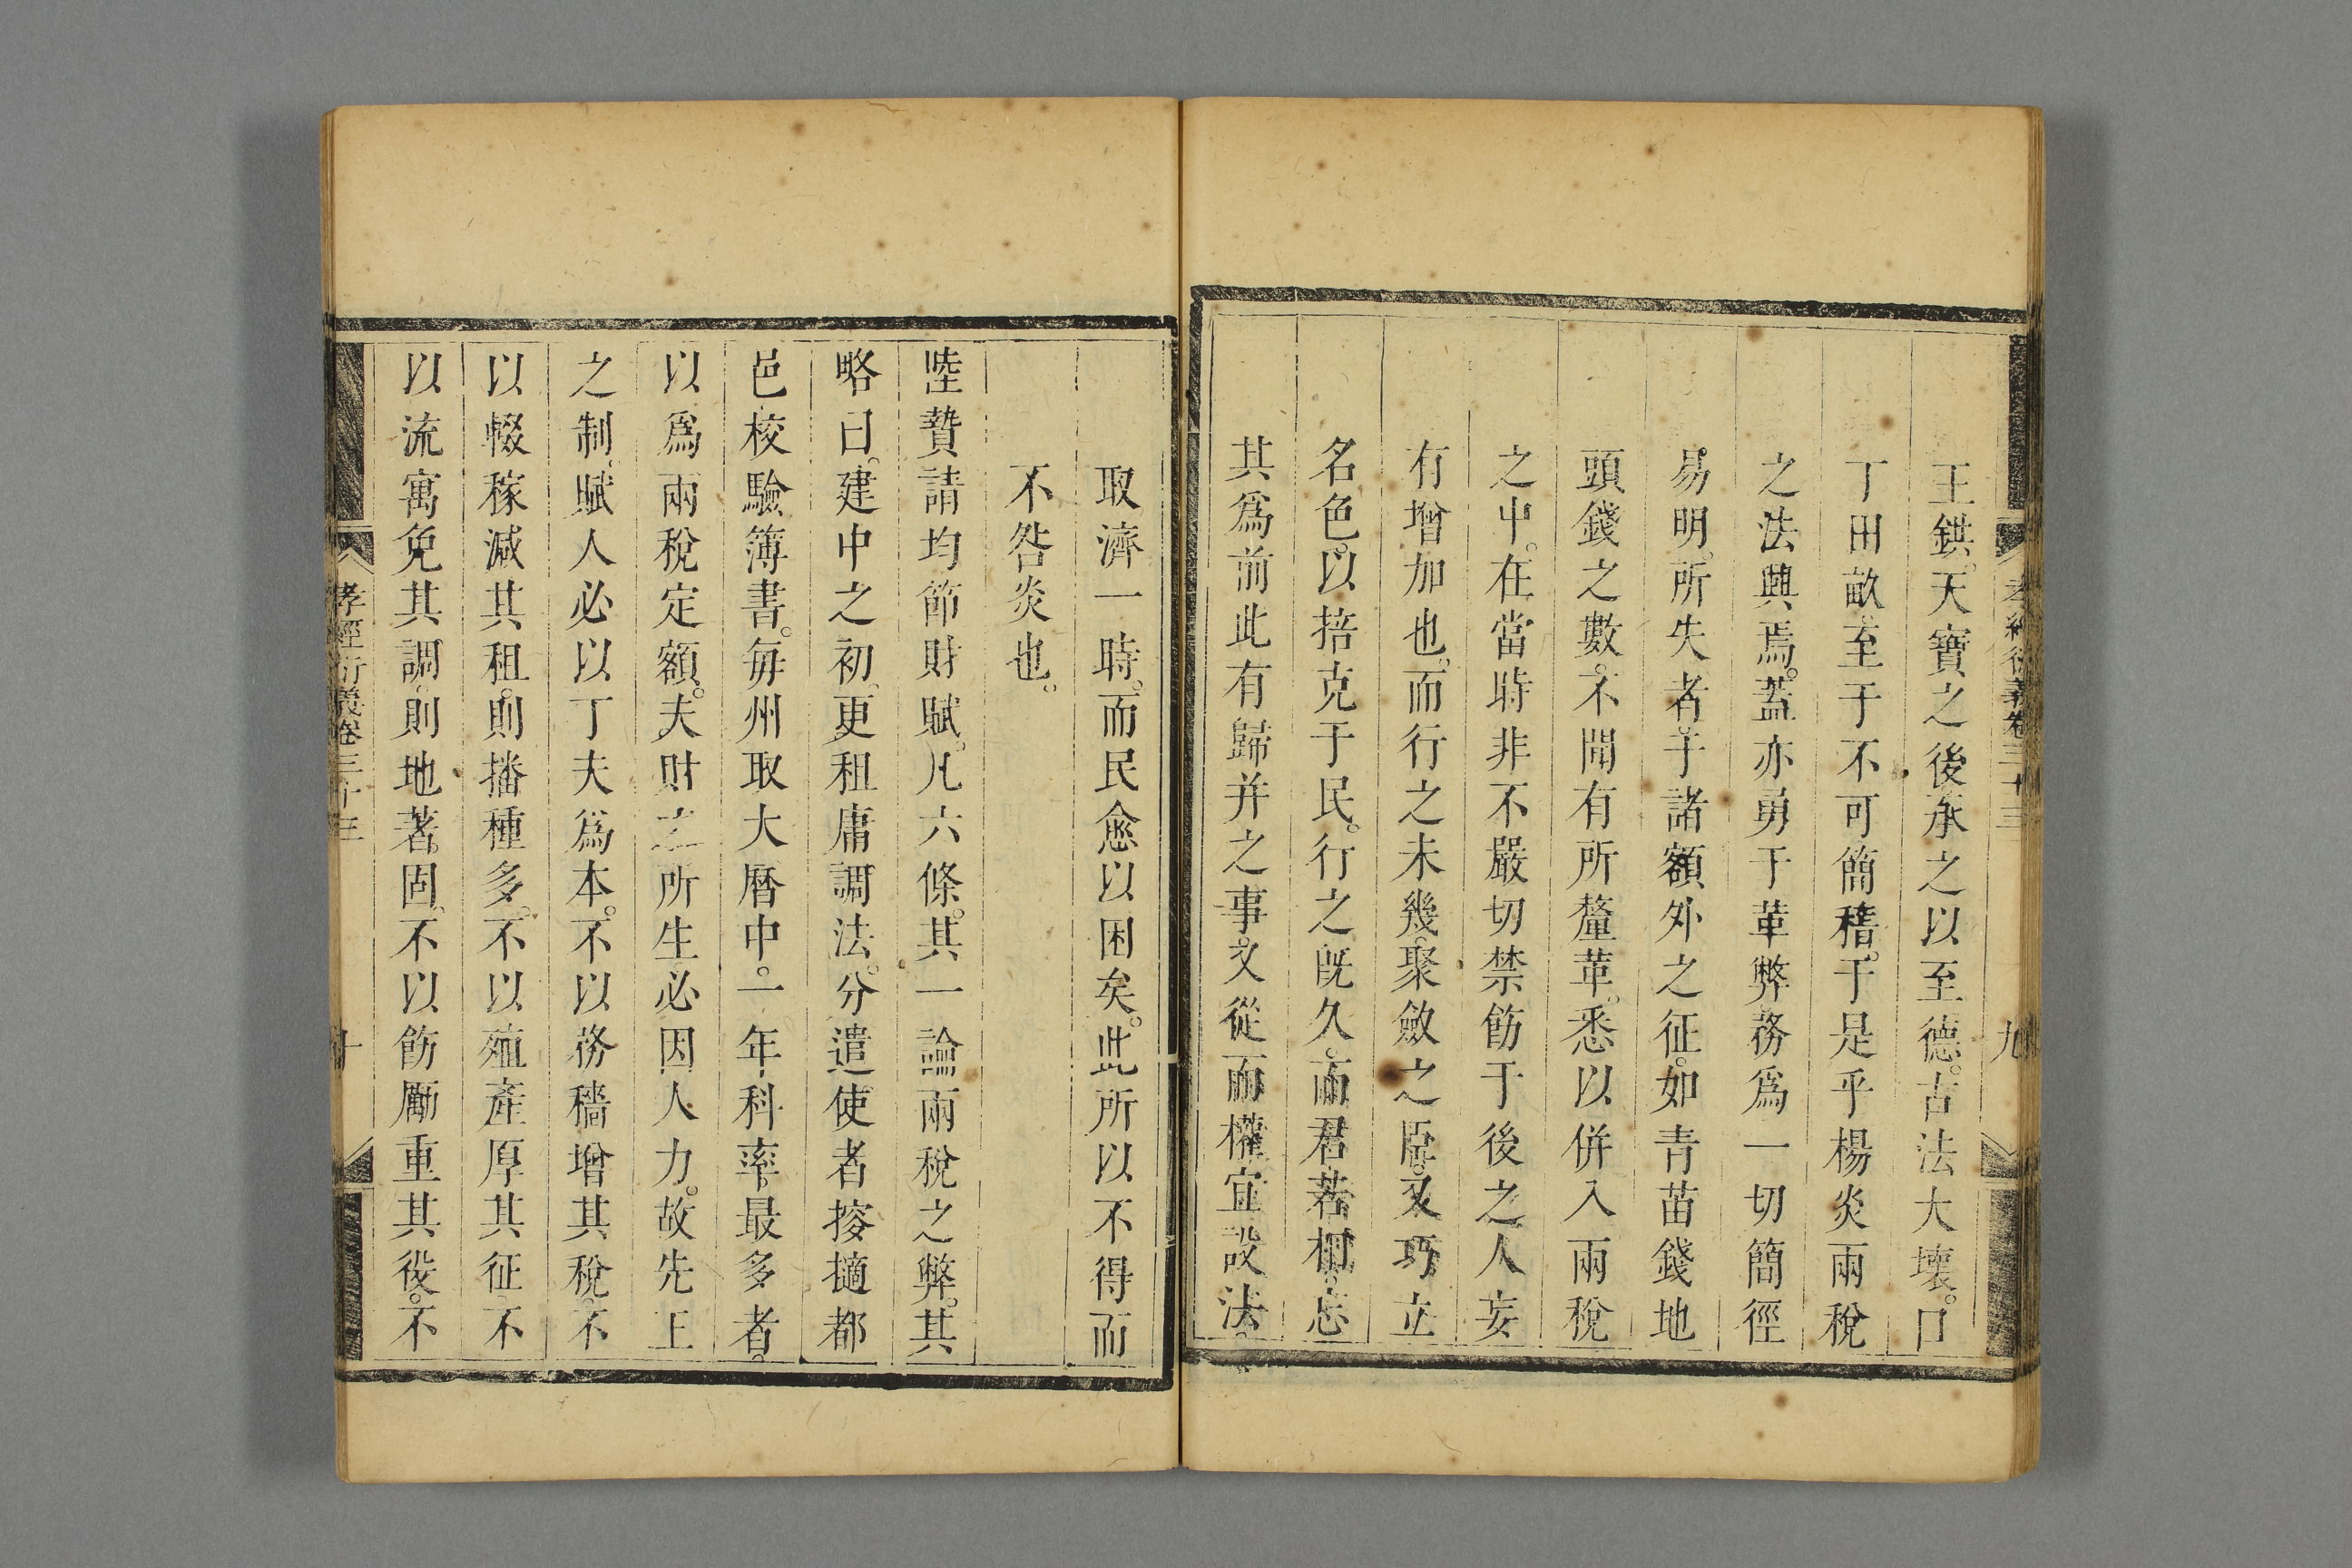 孝經衍義卷三十三
九
王鉷。天寶之後承之以至德。古法大壞。口
丁田畝。至于不可簡稽。于是乎楊炎兩稅
之法興焉。蓋亦勇于革弊務爲一切簡徑
易明。所失者于諸額外之征。如青苗錢地
頭錢之數。不聞有所釐革。悉以併入兩稅
之中。在當時非不嚴切禁飭于後之人妄
有增加也。而行之未幾。聚斂之臣。又巧立
名色。以掊克于民。行之既久。而君若相。忘
其爲前此有歸并之事。又從而權宜設法。
取濟一時。而民愈以困矣。此所以不得而
不咎炎也。
陸贄請均節財賦。凡六條。其一論兩稅之弊。其
略曰。建中之初。更租庸調法。分遣使者按擿都
邑校驗簿書。每州取大曆中。一年科率最多者。
以爲兩稅定額。夫財之所生必因人力。故先王
之制。賦人必以丁夫爲本。不以務穡增其稅。不
以輟稼減其租。則播種多。不以殖產厚其征不
以流寓免其調。則地著。固。不以飭勵重其役。不
孝經衍義卷三十三
十